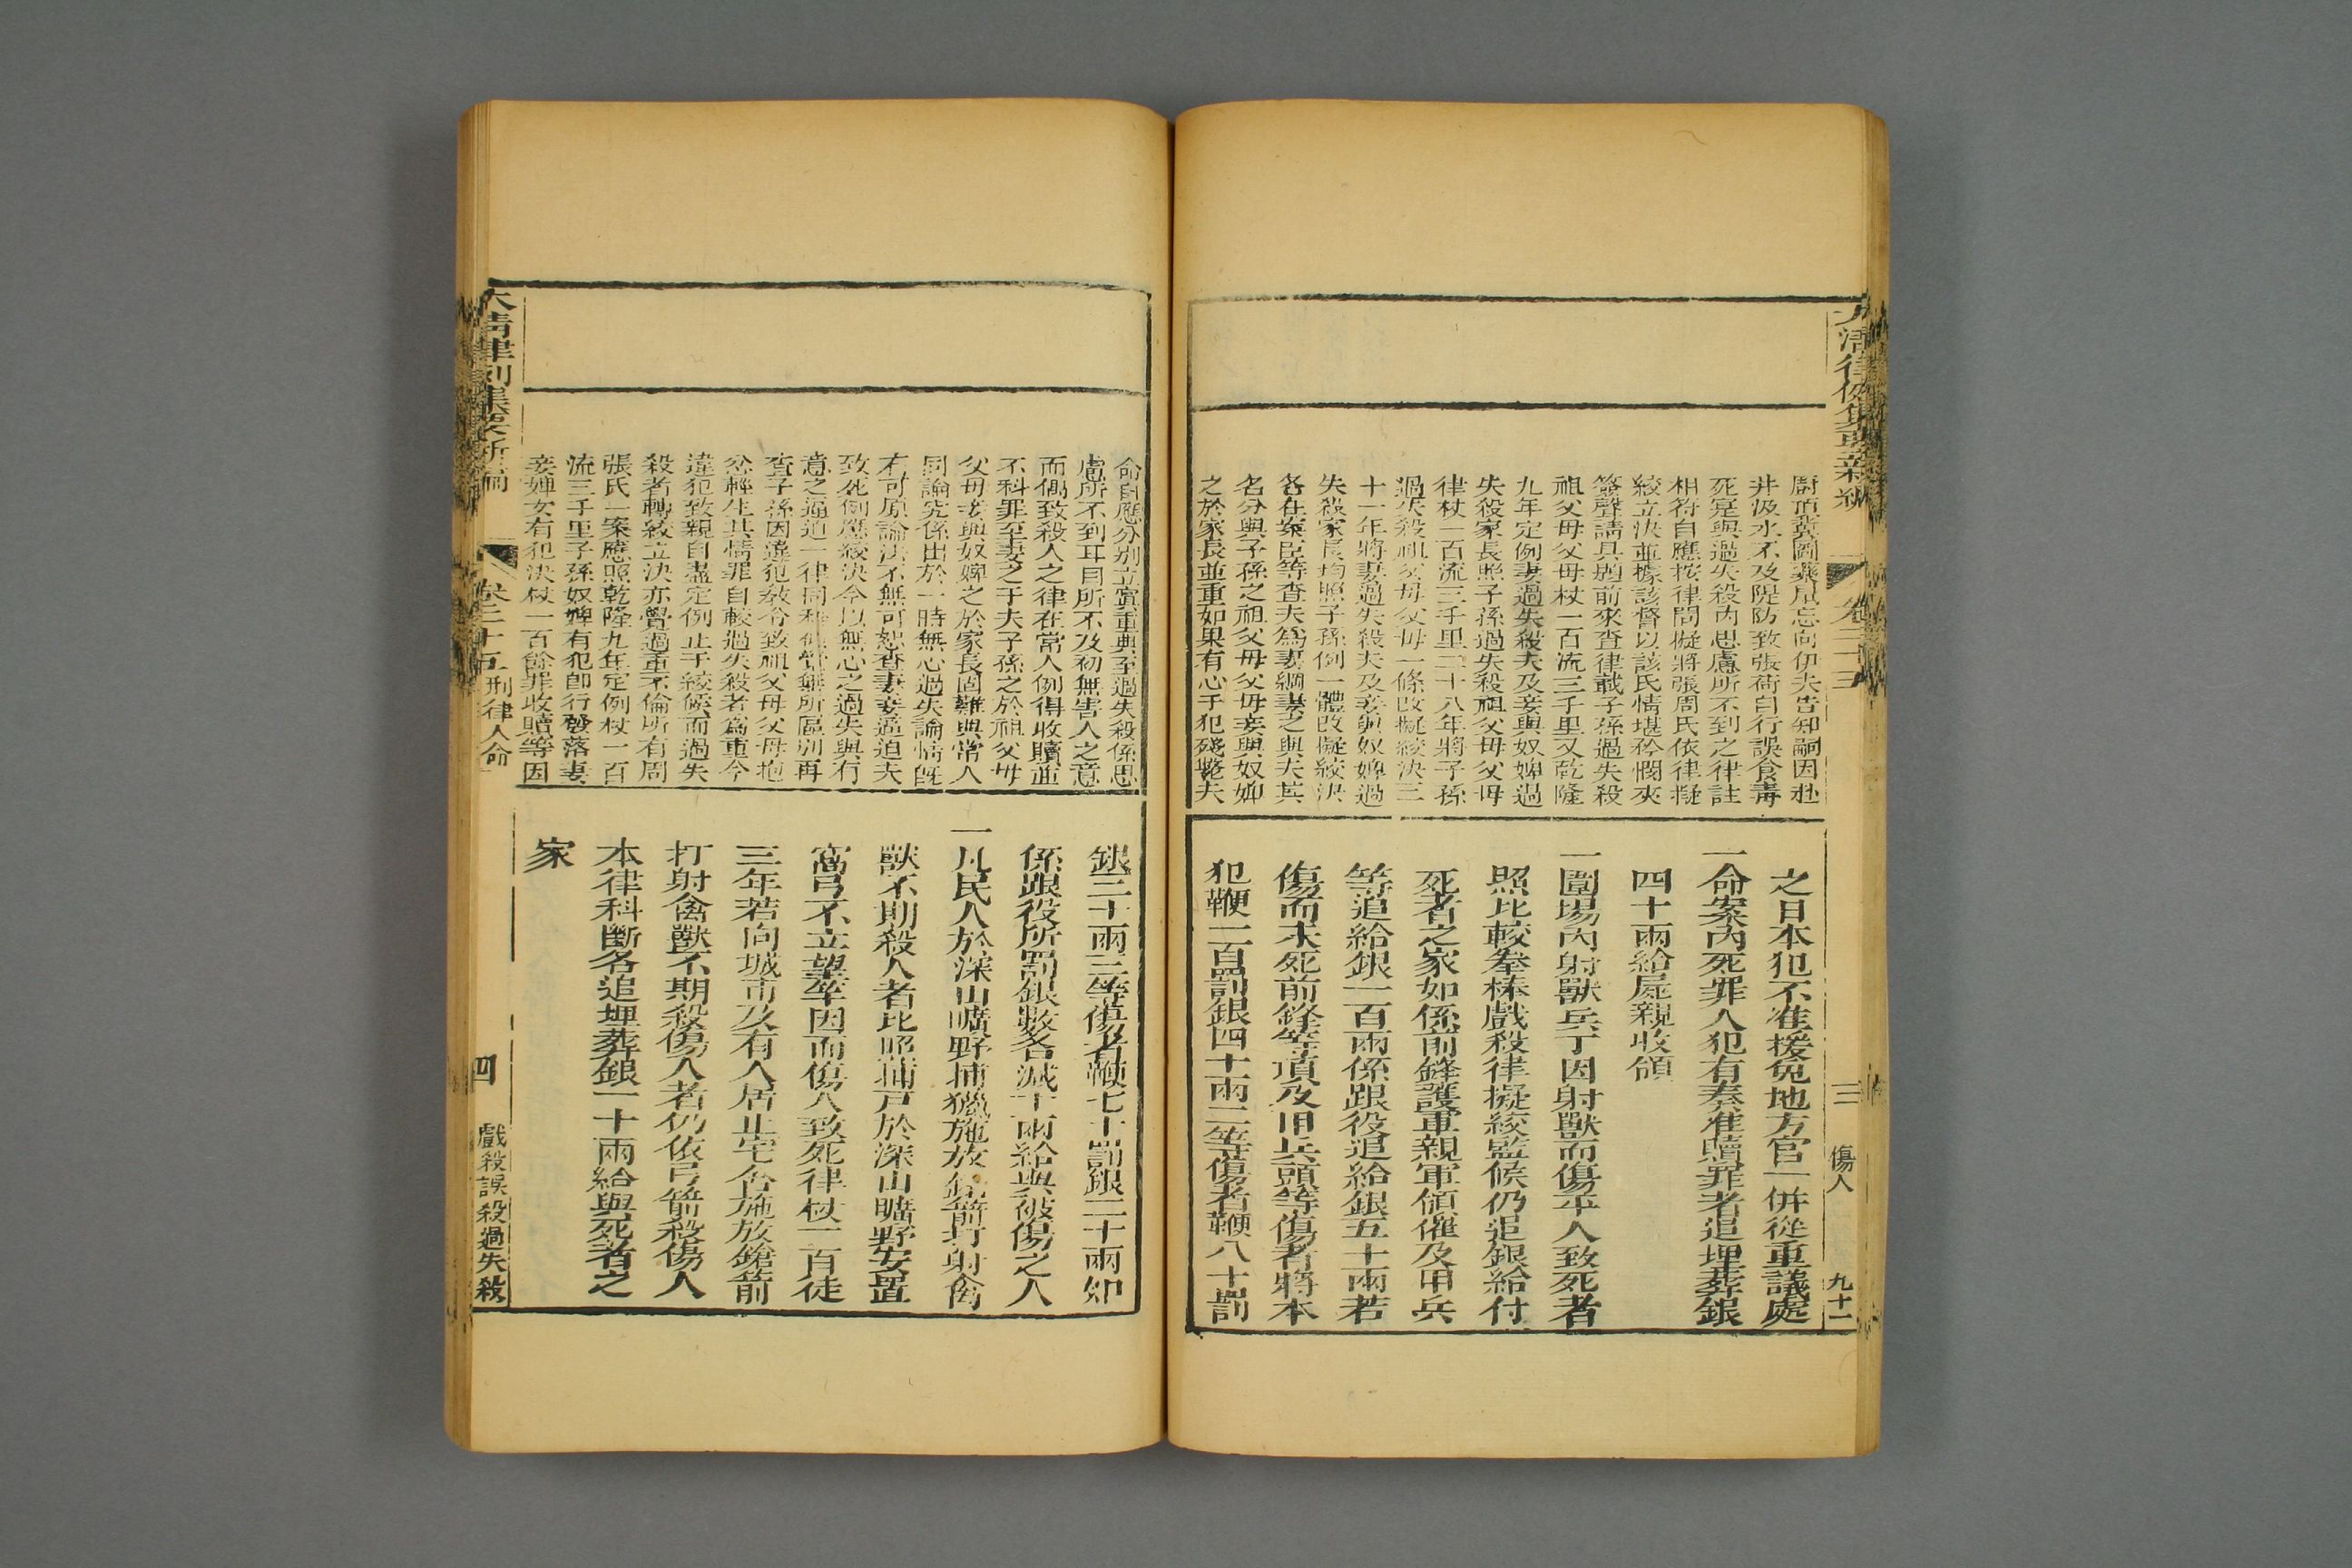 大清律例集要新編
卷二十三
三
傷人
九十二
廚頂糞圖乘凉忘向伊夫告知嗣因赴
井汲水不及隄防致張荷自行誤食毒
死寔與過失殺內思慮所不到之律註
相符自應按律問擬將張周氏依律擬
絞立決並據該督以該氏情堪矜憫夾
簽聲請具題前來查律載子孫過失殺
祖父母父母杖一百流三千里又乾隆
九年定例妻過失殺夫及妾與奴婢過
失殺家長照子孫過失殺祖父母父母
律杖一百流三千里二十八年將子孫
過失殺祖父母父母一條改擬絞決三
十一年將妻過失殺夫及妾與奴婢過
失殺家長均照子孫例一體改擬絞決
各在案臣等查夫為妻綱妻之與夫其
名分與子孫之祖父母父母妾與奴婢
之於家長並重如果有心干犯殘斃夫
之日本犯不准援免地方官一併從重議處
一命案內死罪人犯有奏准贖罪者追埋葬銀
四十兩給屍親收領
一圍場內射獸兵丁因射獸而傷平人致死者
照比較拳棒戲殺律擬絞監候仍追銀給付
死者之家如係前鋒護軍親軍領催及甲兵
等追給銀一百兩係跟役追給銀五十兩若
傷而未死前鋒等項及甲兵頭等傷者將本
犯鞭一百罰銀四十兩二等傷者鞭八十罰
命自應分別立寘重典至過失殺係思
慮所不到耳目所不及初無害人之意
而偶致殺人之律在常人例得收贖並
不科罪至妻之于夫子孫之於祖父母
父母妾與奴婢之於家長固難與常人
同論究係出於一時無心過失論情旣
有可原論法不無可恕查妻妾逼迫夫
致死例應絞決今以無心之過失與有
意之逼迫一律同科似覺無所區別再
查子孫因違犯教令致祖父母父母抱
忿輕生其情罪自較過失殺者為重今
違犯致親自盡定例止于絞候而過失
殺者轉絞立決亦覺過重不倫所有周
張氏一案應照乾隆九年定例杖一百
流三千里子孫奴婢有犯卽行發落妻
妾婢女有犯決杖一百餘罪收贖等因
銀三十兩三等傷者鞭七十罰銀二十兩如
係跟役所罰銀數各減十兩給與被傷之人
一凡民人於深山曠野捕獵施放鎗箭打射禽
獸不期殺人者比照捕戶於深山曠野安置
窩弓不立望竿因而傷人致死律杖一百徒
三年若向城市及有人居止宅舍施放鎗箭
打射禽獸不期殺傷人者仍依弓箭殺傷人
本律科斷各追埋葬銀一十兩給與死者之
家
大清律例集要新編
卷二十五
刑律人命
四
戲殺誤殺過失殺